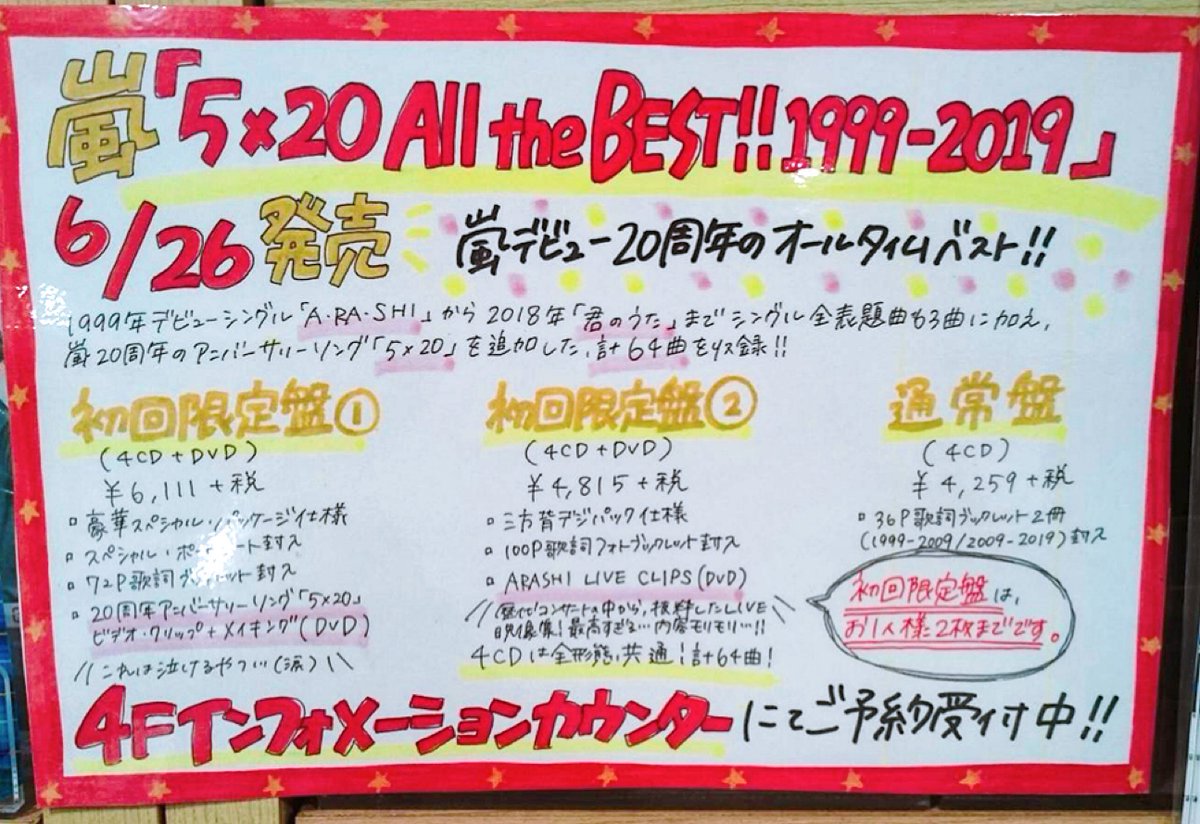 嵐「5×20 All the BEST!! 1999-2019」
6/26 発売 嵐デビュー20周年のオールタイムベスト!!
1999年デビューシングル「A・RA・SHI」から2018年「君のうた」までシングル全表題曲63曲に加え、
嵐20周年のアニバーサリーソング「5×20」を追加した、計64曲を収録!!
初回限定盤①
(4CD+DVD)
¥6,111+税
▫豪華スペシャル・パッケージ仕様
▫スペシャル・ポートレート封入
▫72P歌詞ブックレット封入
▫20周年アニバーサリーソング「5×20」
ビデオ・クリップ+メイキング(DVD)
//これは泣けるやつ…(涙)\\
初回限定盤②
(4CD+DVD)
¥4,815+税
▫三方背デジパック仕様
▫100P歌詞フォトブックレット封入
▫ARASHI LIVE CLIPS(DVD)
//歴代コンサートの中から、抜粋したLIVE\\
映像集!最高すぎる…内容モリモリ…!!
4CDは全形態、共通!計64曲!
通常盤
(4CD)
¥4,259+税
▫36P歌詞ブックレット2冊
(1999-2009/2009-2019)封入
初回限定盤は、
お1人様2枚までです。
4Fインフォメーションカウンターにてご予約受付中!!